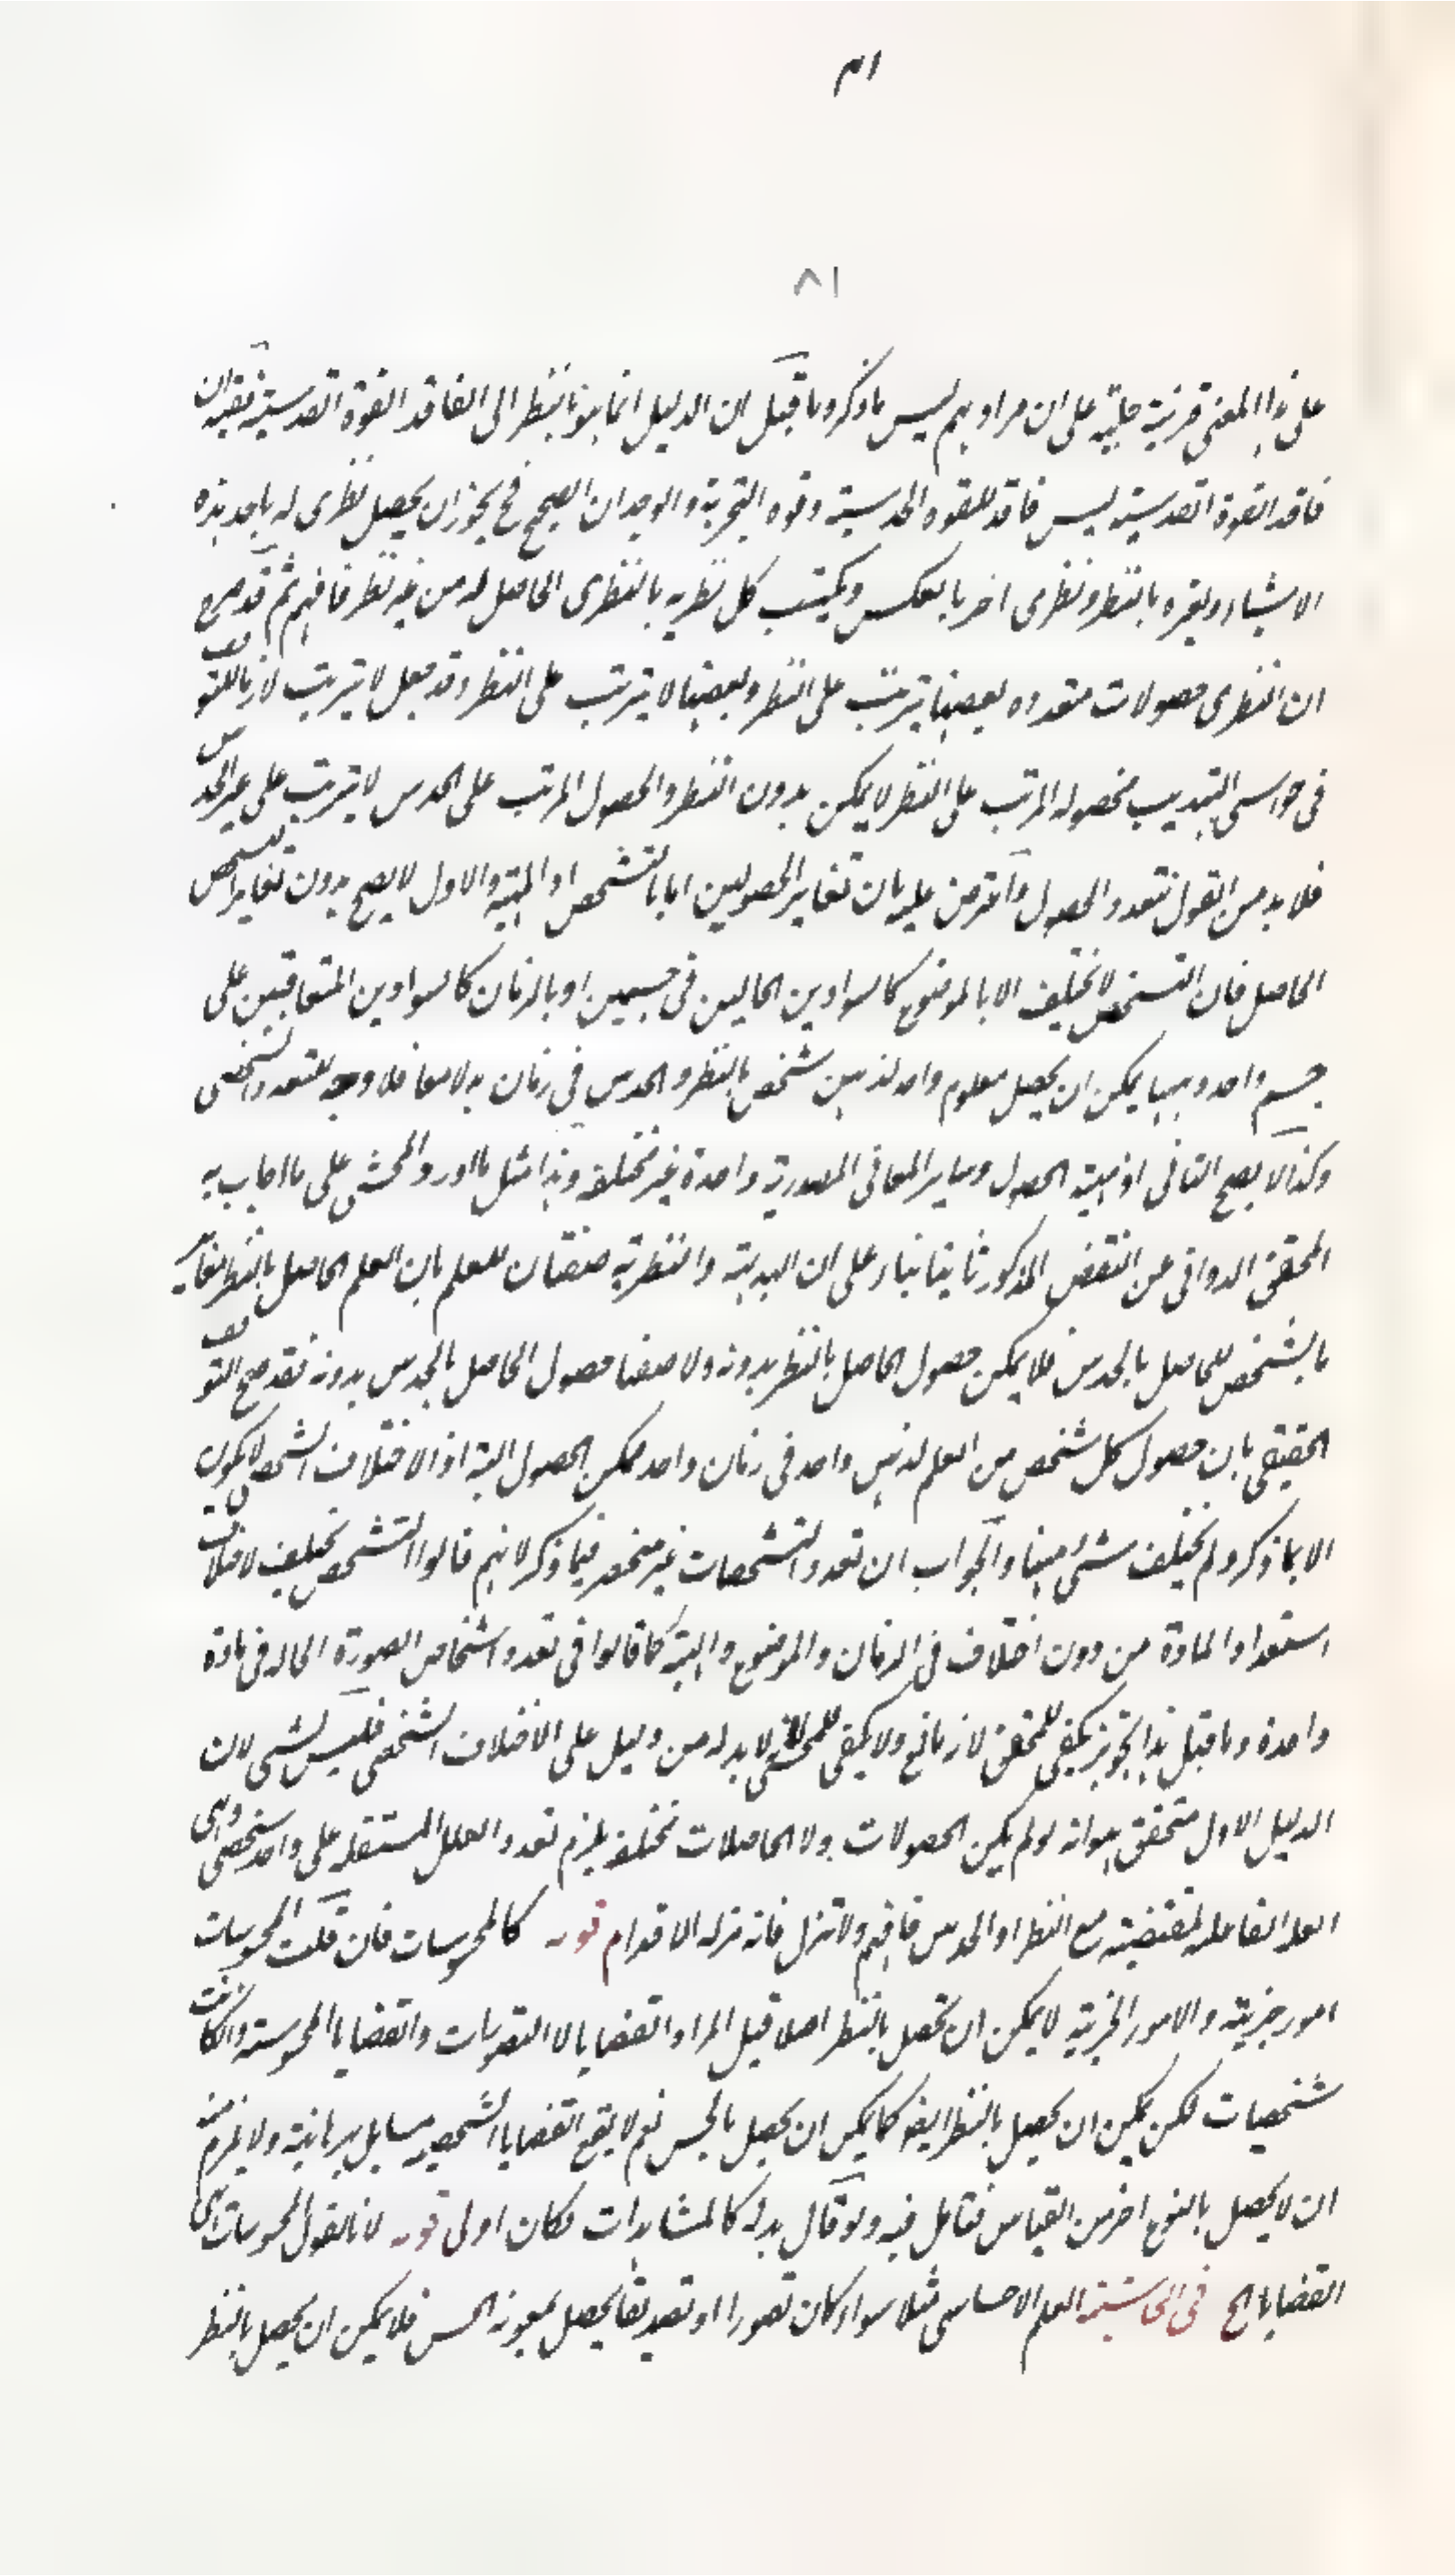 ٨١
على هذا المعنى قرينة جلية على ان مرادهم ليس ما ذكر وما قيل ان الدليل انما هو بالنظر الى الفاقد القوة القدسية ففيه ان
فاقد القوة القدسية ليس فاقد للقوه الحدسية وقوه التجربة والوجدان الصحيح فح يجوز ان يحصل نظرى له باحد هذه
الاشياء وبغيره بالنظر ونظرى اخر بالعكس ويكتسب كل نظريه بالنظرى الحاصل له من غير نظر فافهم ثم قد صرح
ان النظرى حصولات متعدده بعضها يترتب على النظر وبعضها لا يترتب على النظر وقد جعل لا يترتب لازما للتوقف
فى حواشى التهذيب فحصوله المرتب على النظر لا يمكن بدون النظر والحصول المرتب على الحدس لا يترتب على غير الحدس
فلا بد من القول بتعدد الحصول واعترض عليه بان تغاير الحصولين اما بالتشخص او المهية والاول لا يصح بدون تغاير تشخص
الحاصل فان التشخص لا يختلف الا بالموضوع كالسوادين الحالين فى جسمين او بالزمان كالسوادين المتعاقبين على
جسم واحد وههنا يمكن ان يحصل معلوم واحد لذهن شخص بالنظر والحدس فى زمان بدلا معا فلا وجه للتعدد الشخصى
وكذا لا يصح الثانى اذ مهية الحصول وسائر المعانى المصدرية واحدة غير مختلفة وهذا مثل ما اورد المحشى على ما اجاب به
المحقق الدوانى عن النقض المذكور ثانيا بناء على ان البديهة والنظرية صفتان للعلم بان العلم الحاصل بالنظر مغاير
بالشخص للحاصل بالحدس فلا يمكن حصول الحاصل بالنظر بدونه ولا حصول الحاصل بالحدس بدونه فقد صح التوقف
الحقيقى بان حصول كل شخص من العلم لذهن واحد فى زمان واحد ممكن الحصول البتة اذ الاختلاف الشخصى لا يكون
الا بما ذكر ولم يختلف شئ ههنا والجواب ان تعدد التشخصات غير منحصر فيما ذكر لانهم قالوا التشخص يختلف لاختلاف
استعداد المادة من دون اختلاف فى الزمان والموضوع والمهية كما قالوا فى تعدد اشخاص الصورة الحاله فى مادة
واحدة وما قيل هذا التجويز يكفى للمحقق لانه مانع ولا يكفى للمحشى لانه لا بد له من دليل على الاختلاف الشخصى فليس بشى لان
الدليل الاول متحقق هو انه لو لم يكن الحصولات ولا الحاصلات مختلفة يلزم تعدد العلل المستقله على واحد شخصى وهى
العلة الفاعله المقتضية مع النظر او الحدس فافهم ولا تزل فانه مزلة الاقدام قوله كالمحسوسات فان قلت المحسوسات
امور جزئية والامور الجزئية لا يمكن ان تحصل بالنظر اصلا قيل المراد القضايا لا التصورات والقضايا المحسوسة وان كانت
شخصيات لكن يمكن ان يحصل بالنظر ايضا كما يمكن ان يحصل بالحس نعم لا يقع القضايا الشخصيه مسايل برهانية ولا يلزم منه
ان لا يحصل بالنوع اخر من القياس فتامل فيه ولو قال بدله كالمشاهدات لكان اولى قوله لانا نقول المحسوسات هى
القضايا الخ فى الحاشية العلم الاحساسى مثلا سواء كان تصورا او تصديقا يحصل بمعونة الحس فلا يمكن ان يحصل بالنظر